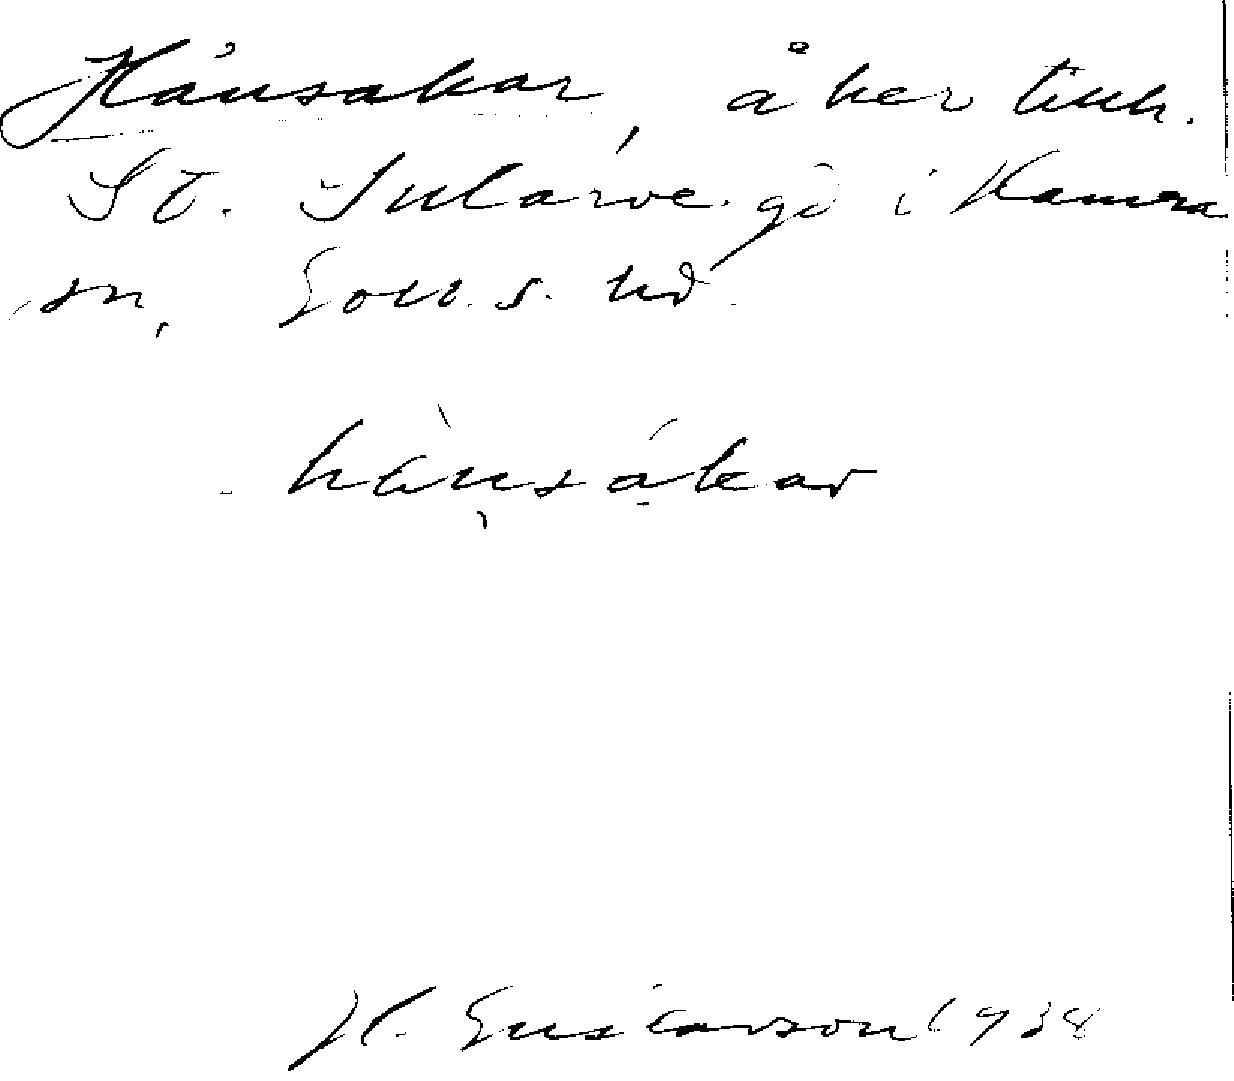 Hånsakar, åker tillh.
St. Sularve gd i Hamra
sn, Gotl. s. hd.
hånsåkar
H. Gustavson 1938